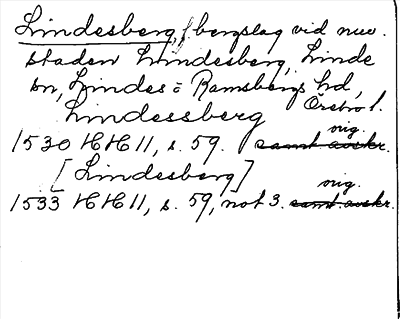 Lindesberg, f bergslag vid nuv.
staden Lindesberg, Linde
sn, Lindes o Ramsbergs hd,
Örebro l.
Lindessberg
1530 HH 11, s. 59. samt. avskr. orig.
[Lindesberg]
1533 HH 11, s. 59, not 3. samt. avskr. orig.